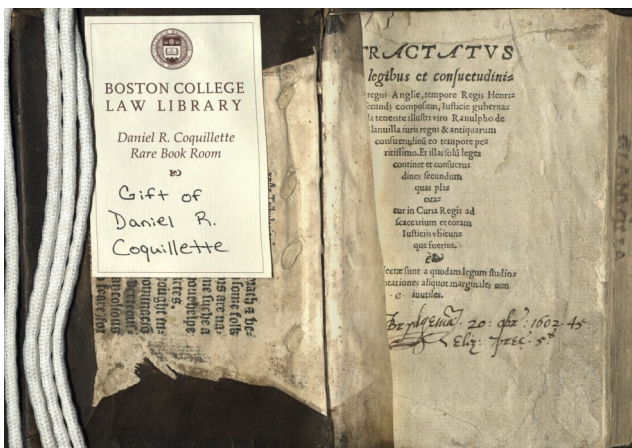 BOSTON COLLEGE
LAW LIBRARY
Daniel R. Coquillette
Rare Book Room
Gift of
Daniel R.
Coquillette
nath a be-
some folk
vs are na-
ne suche a
onhelpe
ctes.
ought en-
TRACTATVS
legibus et consuetudini=
regni Anglie, tempore Regis Henri=
ecundi compositus, Iusticie guberna=
la tenente illustri viro Ranulpho de
lanuilla iuris regni & antiquarum
consuetudinũ eo tempore pe=
ritissimo. Et illas solũ leges
continet et consuetu
dines secundum
quas pla=
cita=
tur in Curia Regis ad
scaccarium et coram
Iusticiis vbicun=
que fuerint.
ectæ sunt a quodam legum studios
otationes aliquot marginales non
inutiles.
20: 1602. 45.
Eliz: